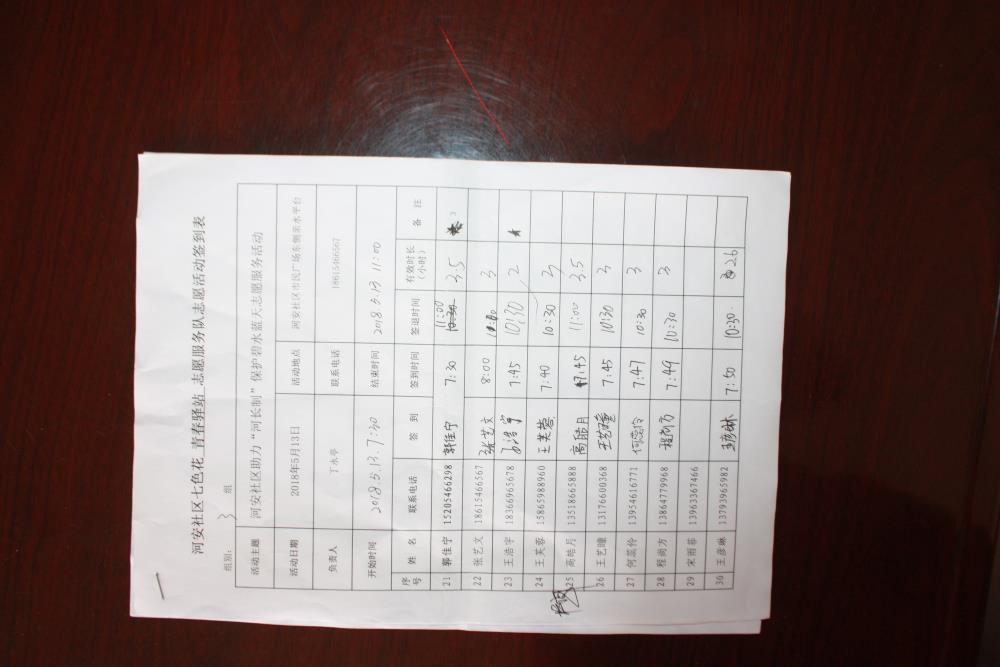 河安社区七色花 青春驿站 志愿服务队志愿活动签到表
组别: 3 组
活动主题 河安社区助力“河长制”保护碧水蓝天志愿服务活动
活动日期 2018年5月13日 活动地点 河安社区市民广场东侧亲水平台
负责人 丁永亭 联系电话 18615466567
开始时间 2018.5.13. 7:30 结束时间 2018.5.13 11:00
序号 姓 名 联系电话 签 到 签到时间 签退时间 有效时长(小时) 备 注
21 郭佳宁 15205466298 郭佳宁 7:30 11:00 10:30 3.5
22 张艺文 18615466567 张艺文 8:00 11:00 3
23 王浩宇 18366965678 王浩宇 7:45 10:30 2
24 王芙蓉 15865988960 王芙蓉 7:40 10:30 3
25 高皓月 13518665888 高皓月 7:45 11:00 3.5
26 王艺瞳 13176600368 王艺瞳 7:45 10:30 3
27 何蕊伶 13954616771 何蕊伶 7:47 10:30 3
28 程尚方 13864779968 程尚方 7:49 10:30 3
29 宋雨菲 13963367466
30 王彦琳 13793965982 王彦琳 7:50 10:30. 2.6